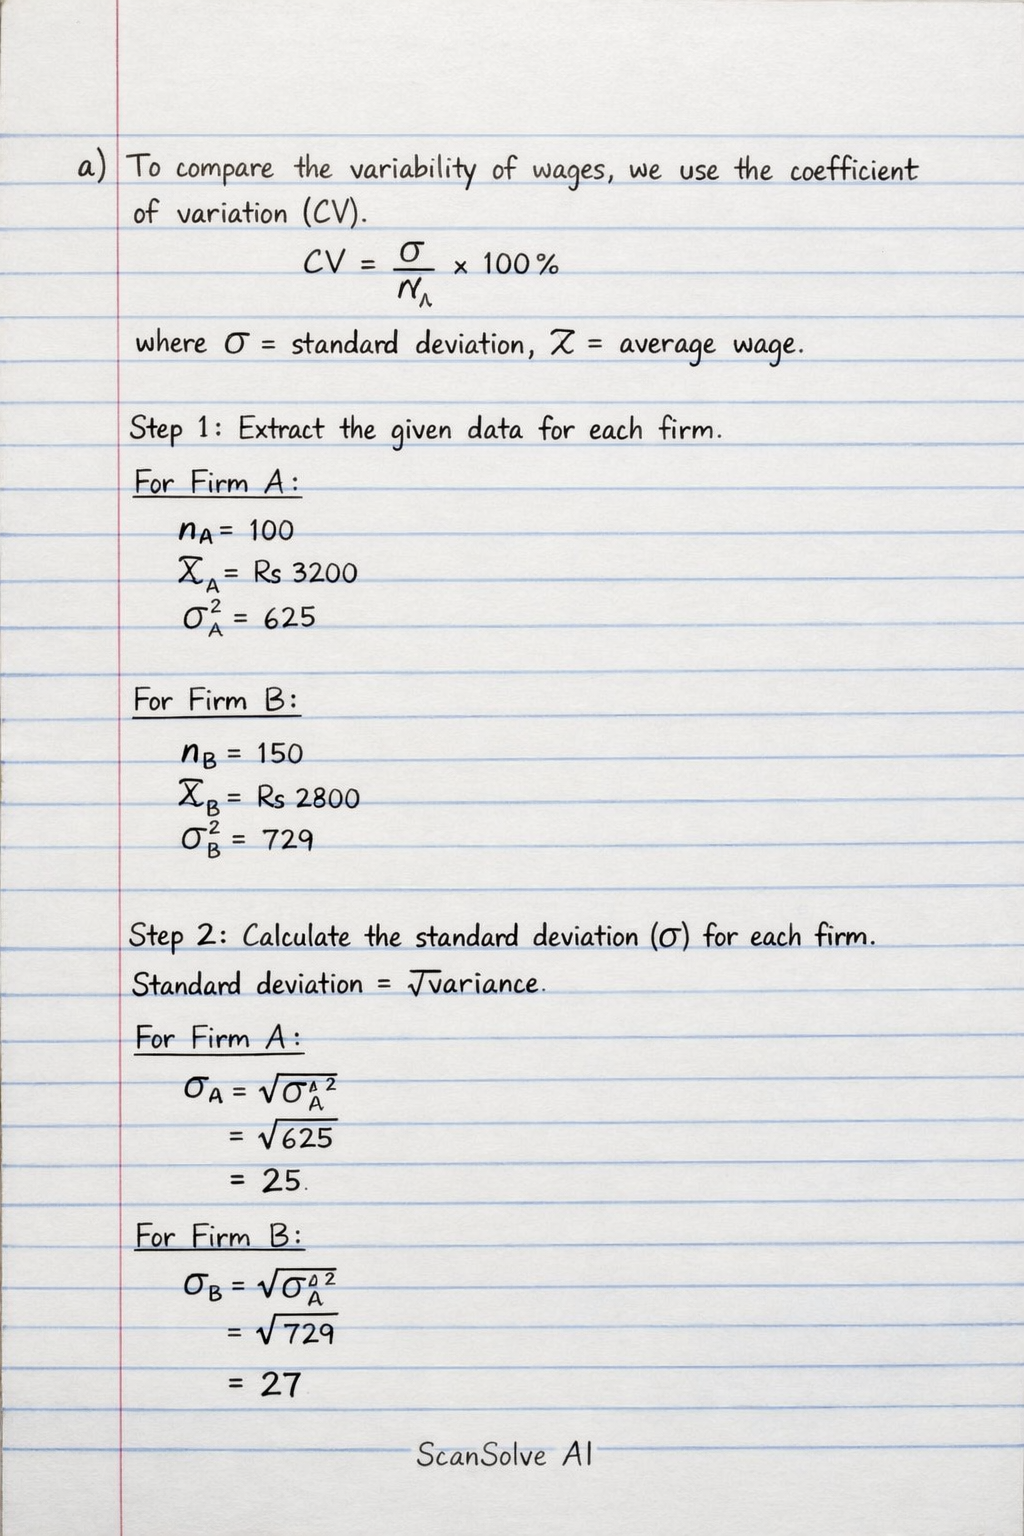 a) To compare the variability of wages, we use the coefficient
of variation (CV).
CV = σ / N_Λ × 100%
where σ = standard deviation, Z̅ = average wage.
Step 1: Extract the given data for each firm.
For Firm A:
n_A = 100
X̅_A = Rs 3200
σ²_A = 625
For Firm B:
n_B = 150
X̅_B = Rs 2800
σ²_B = 729
Step 2: Calculate the standard deviation (σ) for each firm.
Standard deviation = √variance.
For Firm A:
σ_A = √σ_A^Δ2
= √625
= 25.
For Firm B:
σ_B = √σ_A^Δ2
= √729
= 27
ScanSolve AI